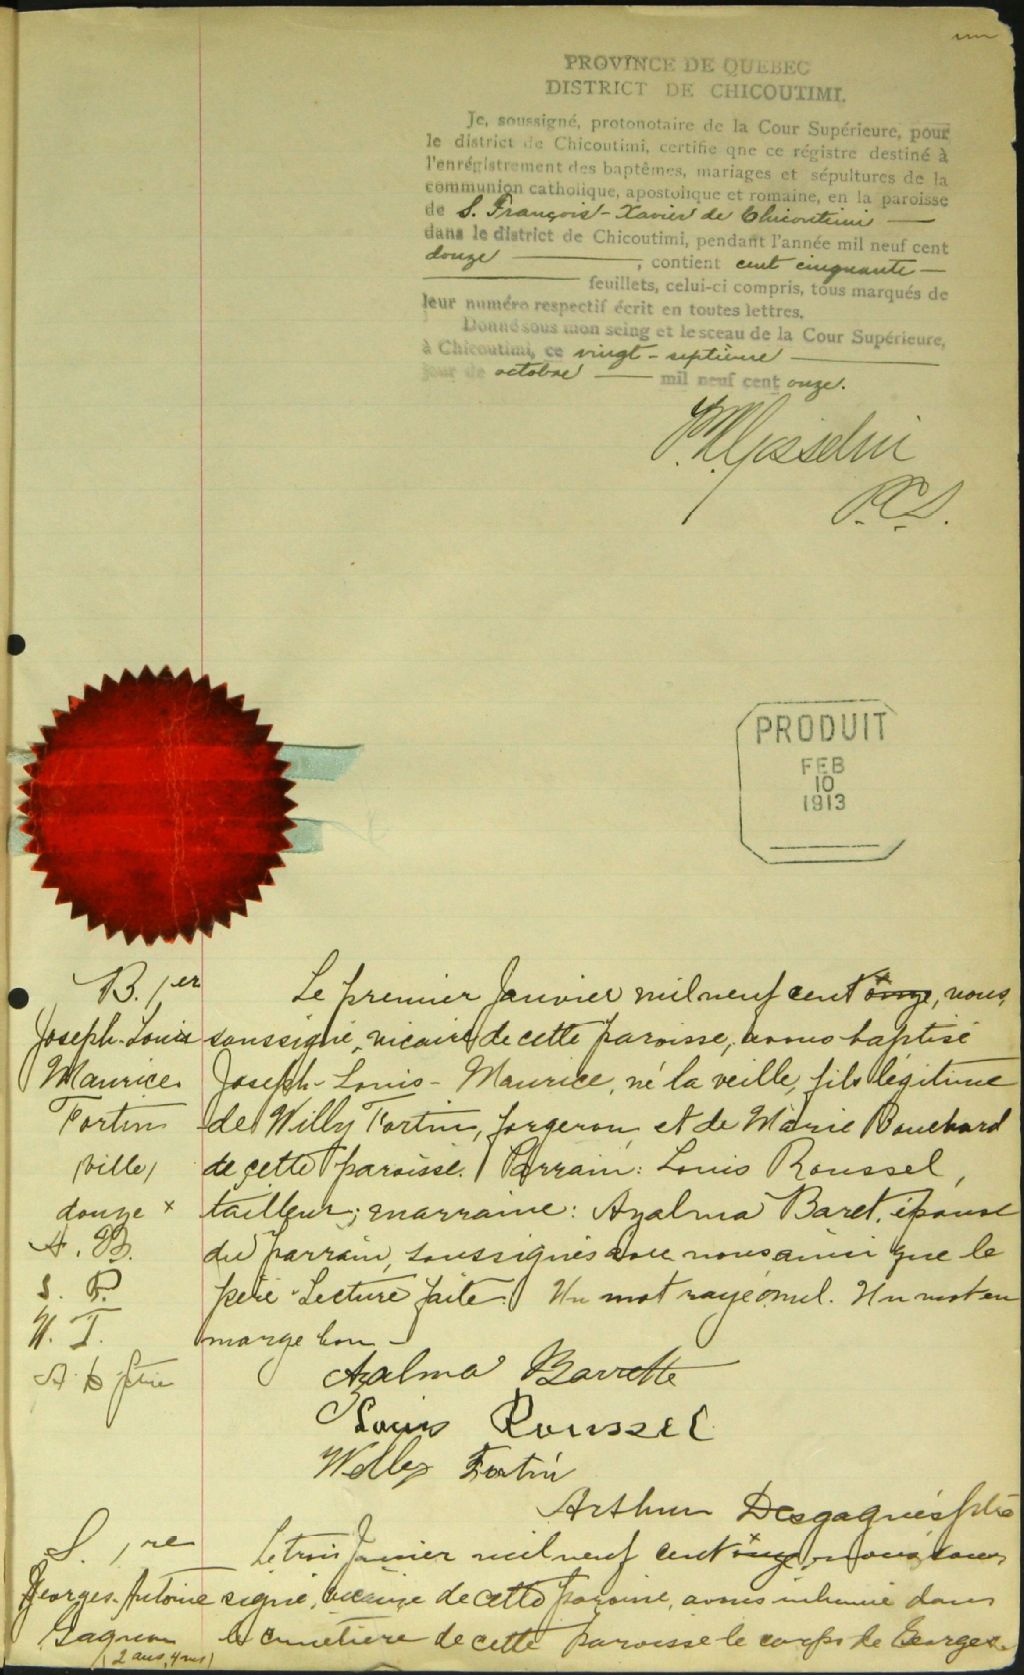 un
PROVINCE DE QUEBEC
DISTRICT DE CHICOUTIMI.
Je, soussigné, protonotaire de la Cour Supérieure, pour
le district de Chicoutimi, certifie qne ce régistre destiné à
l'enrégistrement des baptêmes, mariages et sépultures de la
communion catholique, apostolique et romaine, en la paroisse
de S. François-Xavier de Chicoutimi —
dans le district de Chicoutimi, pendant l'année mil neuf cent
douze —, contient cent cinquante —
— feuillets, celui-ci compris, tous marqués de
leur numéro respectif écrit en toutes lettres.
Donné sous mon seing et le sceau de la Cour Supérieure,
à Chicoutimi, ce vingt-septième —
jour de octobre — mil neuf cent onze.
P.C.S.
PRODUIT
FEB
10
1913
B. 1er
Joseph-Louis
Maurice
Fortin
(ville)
douze x
A. B.
L. R.
W. F.
A D ptre
Le premier Janvier mil neuf cent x onze, nous,
soussigné, vicaire de cette paroisse, avons baptisé
Joseph-Louis-Maurice, né la veille, fils légitime
de Willy Fortin, forgeron, et de Marie Bouchard
de cette paroisse. Parrain: Louis Roussel,
tailleur; marraine: Azalma Baret, épouse
du parrain, soussignés avec nous ainsi que le
père. Lecture faite. Un mot rayé nul. Un mot en
marge bon —
Azalma Barrette
Louis Roussel
Willy Fortin
Arthur Desgagnés ptre
S. 1re
Georges-Antoine
Gagnon
(2 ans, 4 ms)
Le trois Janvier mil neuf cent x onze, nous, sous
signé, vicaire de cette paroisse, avons inhumé dans
le cimetière de cette paroisse le corps de Georges-